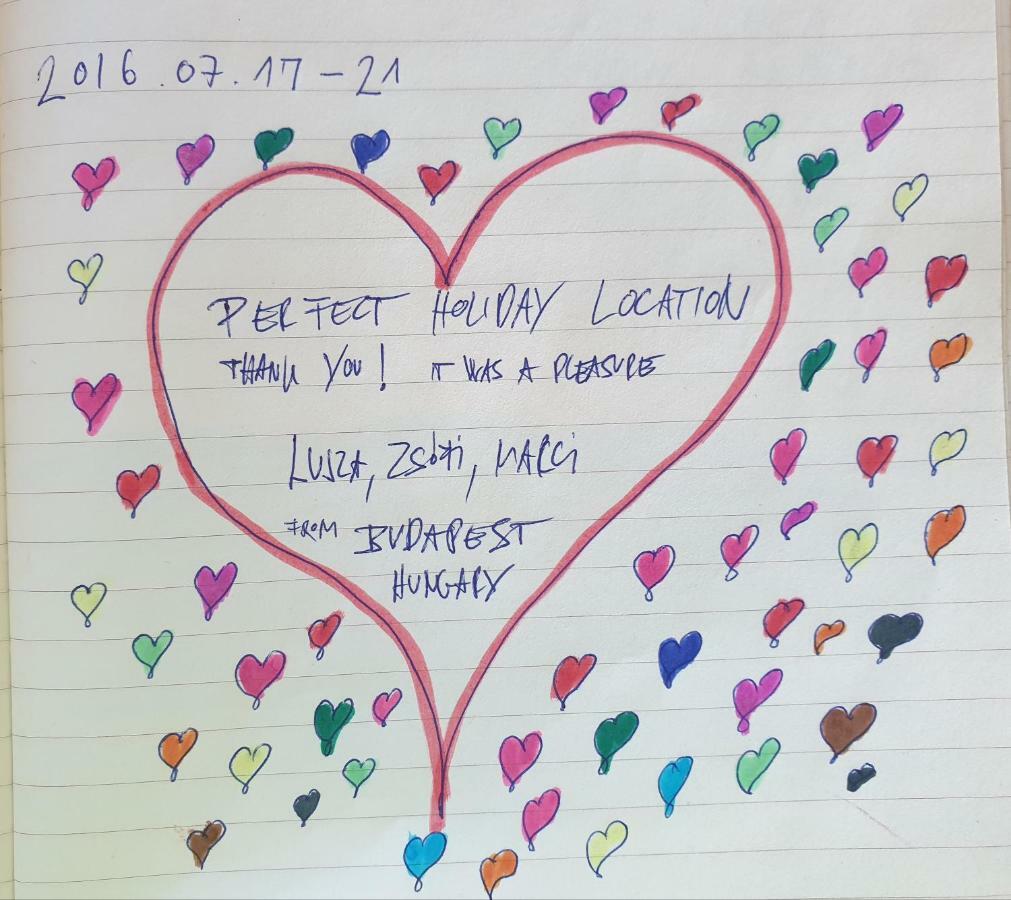 2016.07.17-21
PERFECT HOLIDAY LOCATION
THANK YOU! IT WAS A PLEASURE
LUSZA, ZSÓFI, MARCI
FROM BUDAPEST
HUNGARY